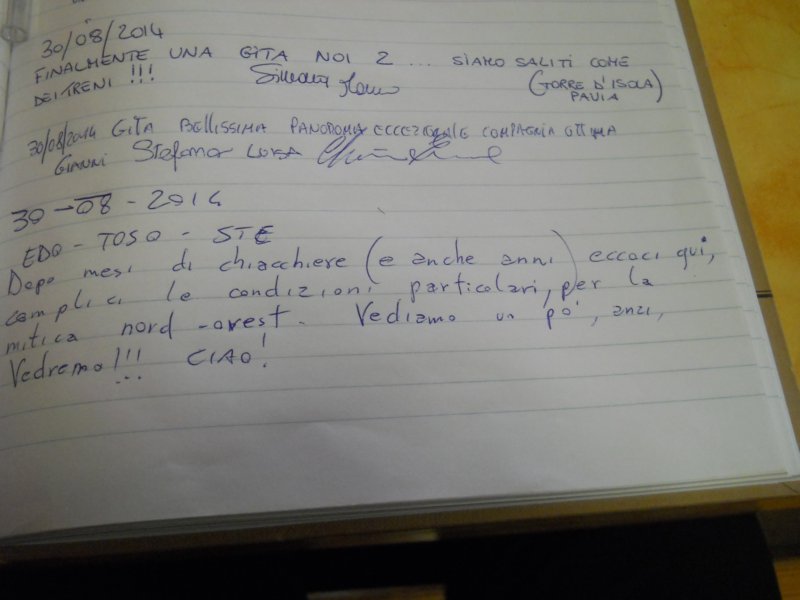 30/08/2014
FINALMENTE UNA GITA NOI 2 ... SIAMO SALITI COME
DEI TRENI !!! (TORRE D'ISOLA)
PAVIA
30/08/2014 GITA BELLISSIMA PANOROMA ECCEZIONALE COMPAGNIA OTTIMA
GIANNI Stefano LUISA
30-08-2014
EDO - TOSO - STE
Dopo mesi di chiacchiere (e anche anni) eccoci qui,
complici le condizioni particolari, per la
mitica nord-ovest. Vediamo un po', anzi,
Vedremo!!! CIAO!